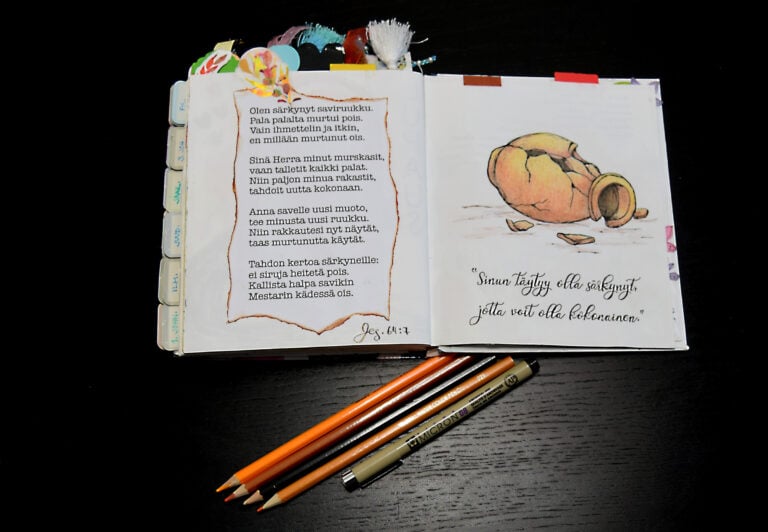 Olen särkynyt saviruukku.
Pala palalta murtui pois.
Vain ihmettelin ja itkin,
en millään murtunut ois.
Sinä Herra minut murskasit,
vaan talletit kaikki palat.
Niin paljon minua rakastit,
tahdoit uutta kokonaan.
Anna savelle uusi muoto,
tee minusta uusi ruukku.
Niin rakkautesi nyt näytät,
taas murtunutta käytät.
Tahdon kertoa särkyneille:
ei siruja heitetä pois.
Kallista halpa savikin
Mestarin kädessä ois.
Jes. 64:7
"Sinun täytyy olla särkynyt,
jotta voit olla kokonainen."
MICRON